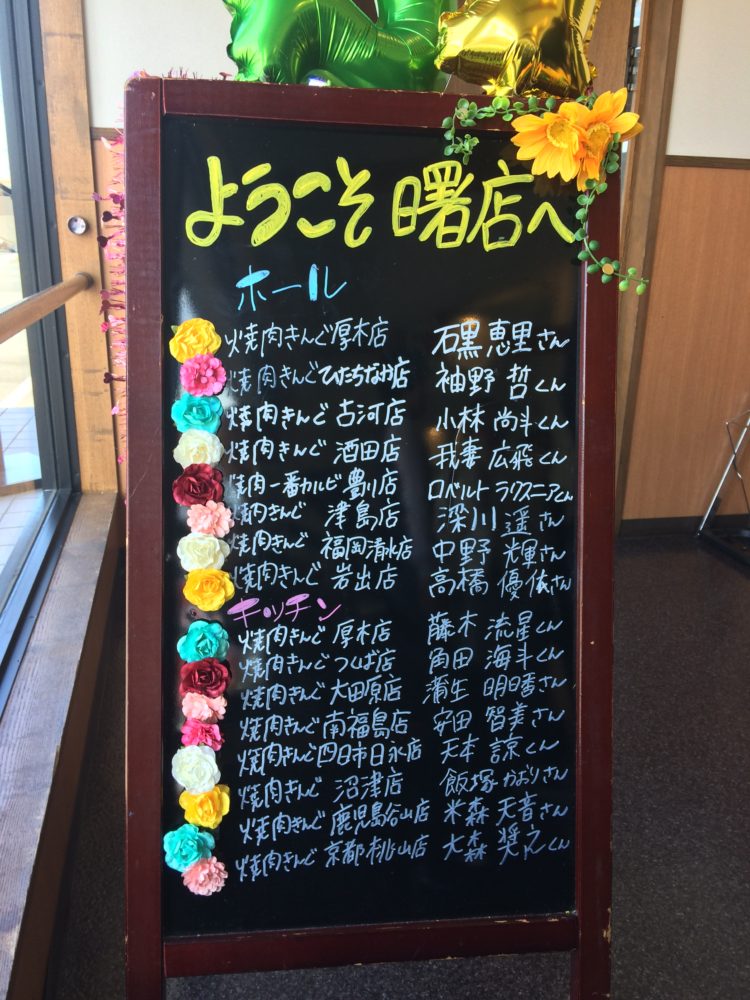 ようこそ 曙店へ
ホール
焼肉きんぐ 厚木店 石黒 恵里さん
焼肉きんぐ ひたちなか店 袖野 哲くん
焼肉きんぐ 古河店 小林 尚斗くん
焼肉きんぐ 酒田店 我妻 広飛くん
焼肉一番カルビ 豊川店 ロベルト ラクスニアくん
焼肉きんぐ 津島店 深川 遥さん
焼肉きんぐ 福岡清水店 中野 輝さん
焼肉きんぐ 岩出店 高橋 優依さん
キッチン
焼肉きんぐ 厚木店 藤木 流星くん
焼肉きんぐ つくば店 角田 海斗くん
焼肉きんぐ 大田原店 蒲生 明日香さん
焼肉きんぐ 南福島店 安田 智美さん
焼肉きんぐ 四日市日永店 天本 諒くん
焼肉きんぐ 沼津店 飯塚 かおりさん
焼肉きんぐ 鹿児島谷山店 米森 天音さん
焼肉きんぐ 京都桃山店 大森 奨之くん